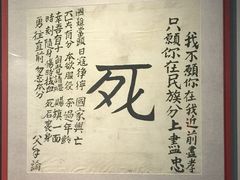 我不願你在我近前盡孝
只願你在民族分上盡忠
死
國難當頭日寇猙獰 國家興亡
匹夫有分 本欲服役 奈過年齡
幸吾有子自覺請纓 賜旗一面
時刻隨身傷時拭血死後裹身
勇往直前勿忘本分
父手諭